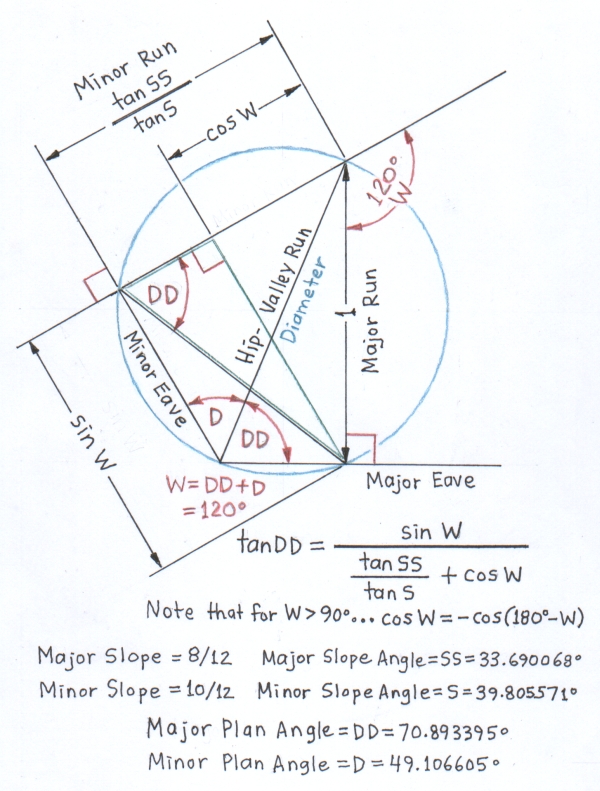 Minor Run
tan SS
tan S
cos W
120°
W
DD
Hip-Valley Run
Diameter
1
Major Run
Minor Eave
D
DD
sin W
W=DD+D
=120°
Major Eave
tanDD = sin W
tan SS
tan S
+ cos W
Note that for W>90°... cos W=-cos(180°-W)
Major Slope = 8/12 Major Slope Angle=SS=33.690068°
Minor Slope =10/12 Minor Slope Angle=S=39.805571°
Major Plan Angle=DD=70.893395°
Minor Plan Angle=D=49.106605°